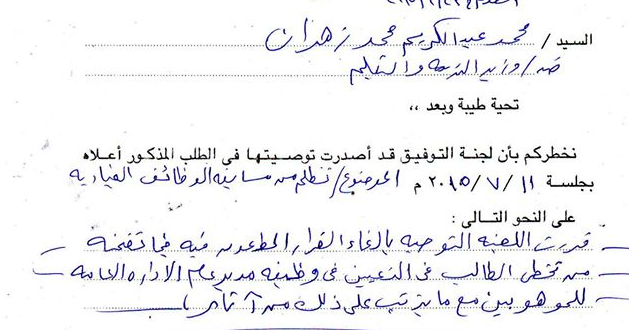 السيد / محمد عبد الكريم محمد زهران
ضد / وزير التربية والتعليم
تحية طيبة وبعد ،،
نخطركم بأن لجنة التوفيق قد أصدرت توصيتها فى الطلب المذكور أعلاه
بجلسة ١١ / ٧ / ٢٠١٥ م الموضوع / تظلم من مسابقة الوظائف القيادية
على النحو التالى :
قررت اللجنة التوصية بإلغاء القرار المطعون فيه فيما تضمنه
من تخطى الطالب فى التعيين فى وظيفة مدير عام الادارة العامة
للموهوبين مع ما يترتب على ذلك من آثار )